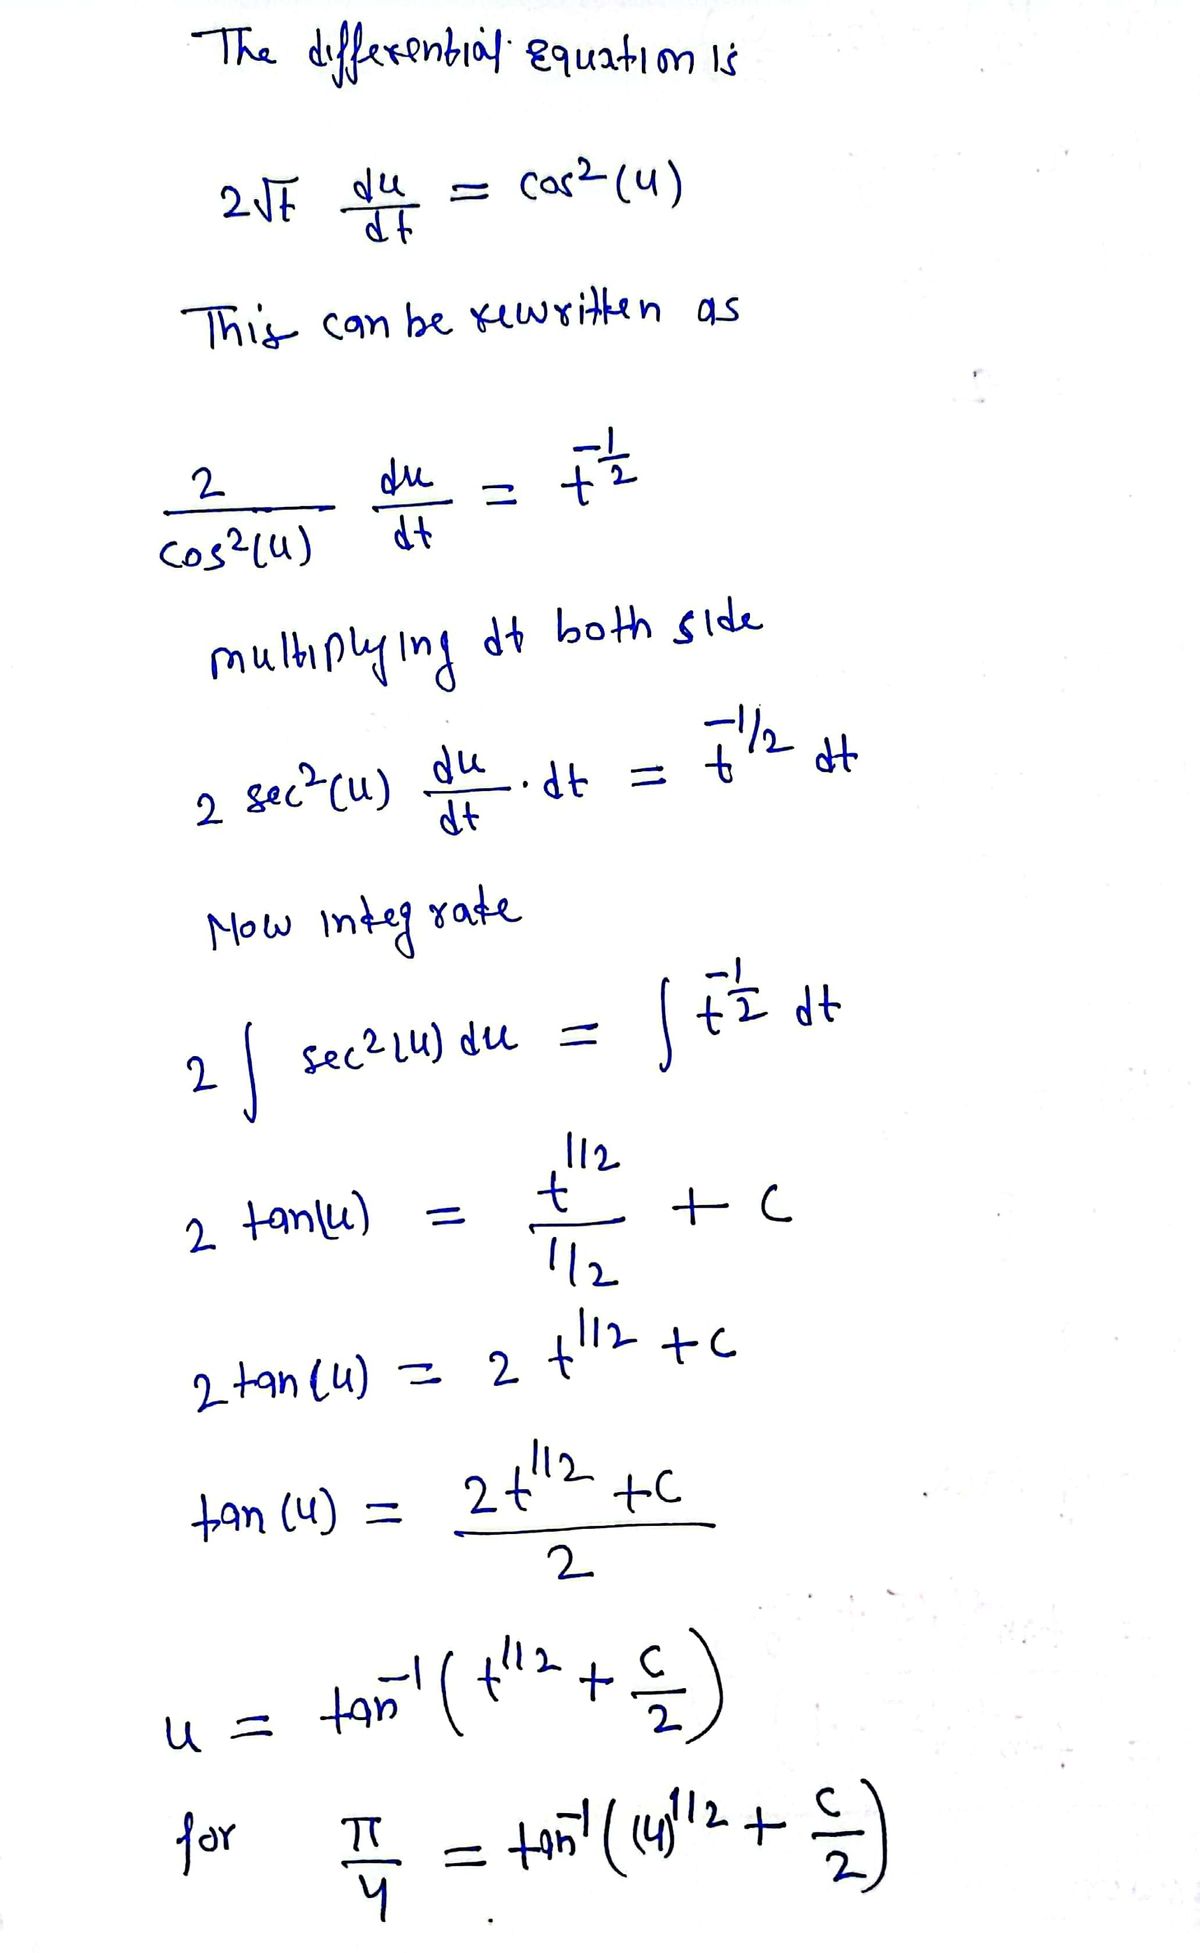 The differential Equation is
2√t du/dt = cos²(u)
This can be rewritten as
2/cos²(u) du/dt = t^(-1/2)
multiplying dt both side
2 sec²(u) du/dt · dt = t^(-1/2) dt
Now integrate
2 ∫ sec²(u) du = ∫ t^(-1/2) dt
2 tan(u) = t^(1/2)/(1/2) + C
2 tan(u) = 2 t^(1/2) + C
tan(u) = (2t^(1/2) + C)/2
u = tan⁻¹(t^(1/2) + C/2)
for π/4 = tan⁻¹((4)^(1/2) + C/2)